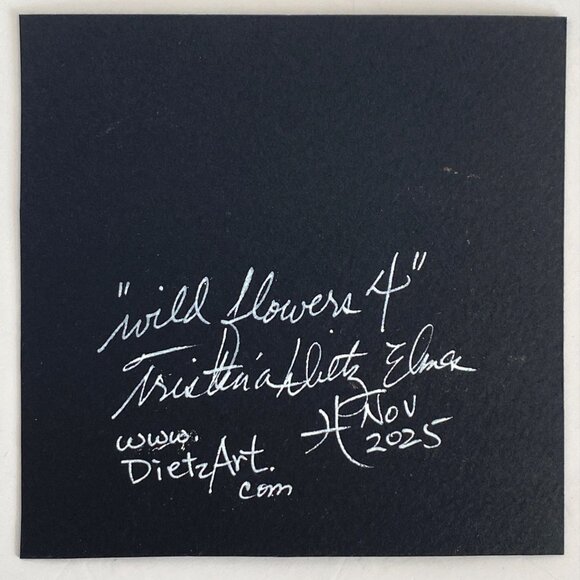 "wild flowers 4"
Tristina Dietz Elmes
Nov
www.
2025
DietzArt.
com